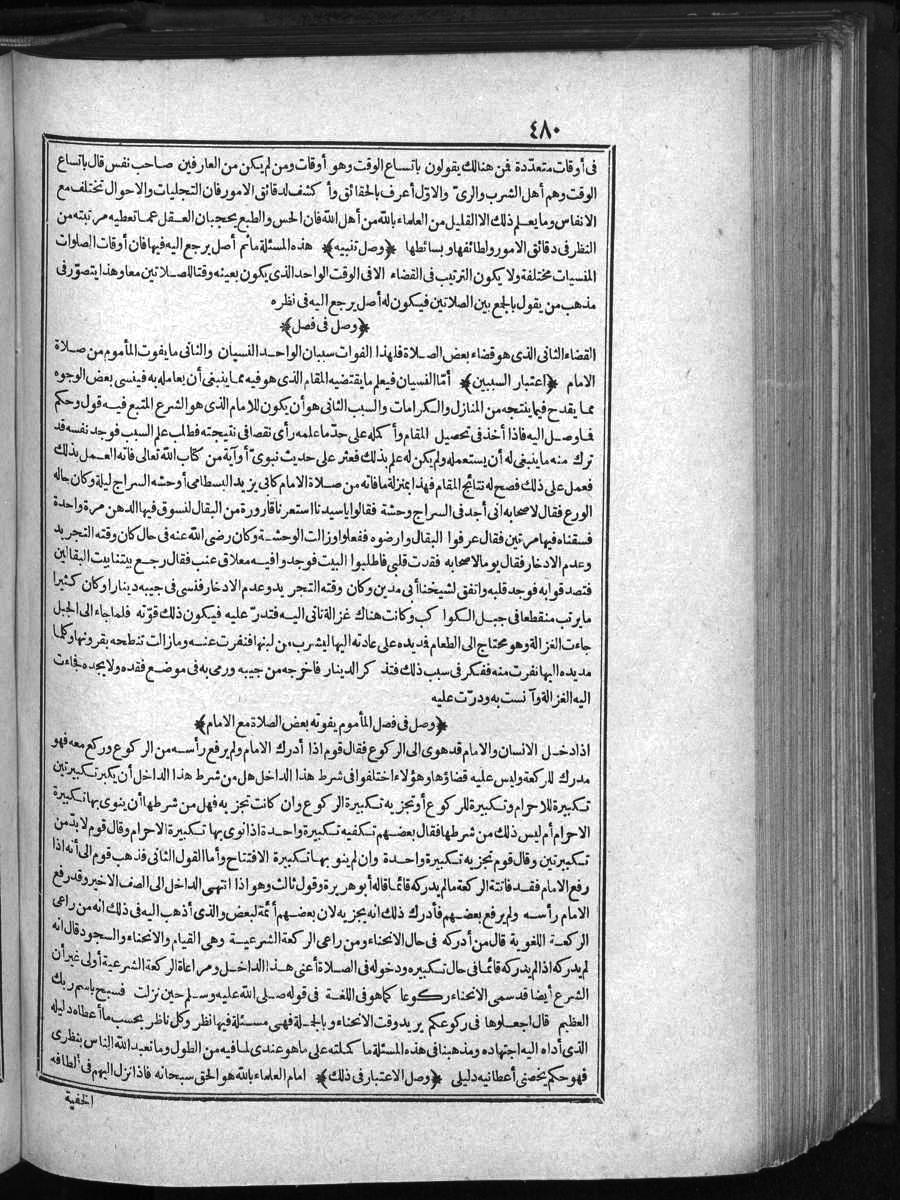 ٤٨٠
فى أوقات متعدّدة فمن هنالك يقولون باتساع الوقت وهو أوقات ومن لم يكن من العارفين صاحب نفس قال باتساع
الوقت وهم أهل الشرب والرىّ والاوّل أعرف بالحقائق وأ كشف لدقائق الامور فان التجليات والاحوال تختلف مع
الانفاس وما يعلم ذلك الا القليل من العلماء بالله من أهل الله فان الحس والطبع يحجبان العقل عما تعطيه مرتبته من
النظر فى دقائق الامور ولطائفها وبسائطها ﴿وصل تنبيه﴾ هذه المسئلة ما ثم أصل يرجع اليه فيها فان أوقات الصلوات
المنسيات مختلفة ولا يكون الترتيب فى القضاء الا فى الوقت الواحد الذى يكون بعينه وقتا للصلاتين معا وهذا يتصوّر فى
مذهب من يقول بالجمع بين الصلاتين فيكون له أصل يرجع اليه فى نظره
﴿وصل فى فصل﴾
القضاء الثانى الذى هو قضاء بعض الصلاة فلهذا الفوات سببان الواحد النسيان والثانى ما يفوت المأموم من صلاة
الامام ﴿اعتبار السببين﴾ أمّا النسيان فيعلم ما يقتضيه المقام الذى هو فيه مما ينبغى أن يعامله به فينسى بعض الوجوه
مما يقدح فيما ينتجه من المنازل والكرامات والسبب الثانى هو أن يكون للامام الذى هو الشرع المتبع فيه قول وحكم
فما وصل اليه فاذا أخذ فى تحصيل المقام وأ كمله على حدّ ما علمه رأى نقصا فى نتيجته فطلب علم السبب فوجد نفسه قد
ترك منه ما ينبغى له أن يستعمله ولم يكن له علم بذلك فعثر على حديث نبوىّ أو آية من كتاب الله تعالى فاته العمل بذلك
فعمل على ذلك فصح له نتائج المقام فهذا بمنزلة ما فاته من صلاة الامام كانى يزيد البسطامى أوحشه السراج ليلة وكان حاله
الورع فقال لاصحابه انى أجد فى السراج وحشة فقالوا يا سيدنا استعرنا قارورة من البقال لنسوق فيها الدهن مرة واحدة
فسقناه فيها مرتين فقال عرفوا البقال وارضوه ففعلوا وزالت الوحشة وكان رضى الله عنه فى حال كان وقته التجريد
وعدم الادخار فقال يوما لاصحابه فقدت قلبى فاطلبوا البيت فوجدوا فيه معلاق عنب فقال رجع بيتنا بيت البقالين
فتصدقوا به فوجد قلبه واتفق لشيخنا أبى مدين وكان وقته التجريد وعدم الادخار فنسى فى جيبه دينارا وكان كثيرا
ما يرتب منقطعا فى جبل الكوا كب وكانت هناك غزالة تاتى اليه فتدرّ عليه فيكون ذلك قوّته فلما جاء الى الجبل
جاءت الغزالة وهو محتاج الى الطعام فمديده على عادته اليها ليشرب من لبنها فنفرت عنه وما زالت تنطحه بقرونها وكلما
مديده اليها نفرت منه ففكر فى سبب ذلك فتذ كر الدينار فاخرجه من جيبه ورمى به فى موضع فقده ولا يجده فجاءت
اليه الغزالة وآ نست به ودرّت عليه
﴿وصل فى فصل المأموم يفوته بعض الصلاة مع الامام﴾
اذا دخل الانسان والامام قد هوى الى الركوع فقال قوم اذا أدرك الامام ولم يرفع رأسه من الركوع وركع معه فهو
مدرك للركعة وليس عليه قضاؤها وهؤلاء اختلفوا فى شرط هذا الداخل هل من شرط هذا الداخل أن يكبر تكبيرتين
تكبيرة للاحرام وتكبيرة للركوع أو تجزيه تكبيرة الركوع وان كانت تجزيه فهل من شرطها أن ينوى بها تكبيرة
الاحرام أم ليس ذلك من شرطها فقال بعضهم تكفيه تكبيرة واحدة اذا نوى بها تكبيرة الاحرام وقال قوم لا بدّ من
تكبيرتين وقال قوم تجزيه تكبيرة واحدة وان لم ينو بها تكبيرة الافتتاح وأما القول الثانى فذهب قوم الى أنه اذا
رفع الامام فقد فاتته الركعة ما لم يدركه قائما قاله أبو هريرة وقول ثالث وهو اذا انتهى الداخل الى الصف الاخير وقد رفع
الامام رأسه ولم يرفع بعضهم فأدرك ذلك انه يجزيه لان بعضهم أئمّة لبعض والذى أذهب اليه فى ذلك انه من راعى
الركعة اللغوية قال من أدركه فى حال الانحناء ومن راعى الركعة الشرعية وهى القيام والانحناء والسجود قال انه
لم يدركه اذا لم يدركه قائما فى حال تكبيره ودخوله فى الصلاة أعنى هذا الداخل ومراعاة الركعة الشرعية أولى غير أن
الشرع أيضا قد سمى الانحناء ركوعا كما هو فى اللغة فى قوله صلى الله عليه وسلم حين نزلت فسبح باسم ربك
العظيم قال اجعلوها فى ركوعكم يريد وقت الانحناء وبالجملة فهى مسئلة فيها نظر وكل ناظر بحسب ما أعطاه دليله
الذى أداه اليه اجتهاده ومذهبنا فى هذه المسئلة ما كملته على ما هو عندى لما فيه من الطول وما تعبد الله الناس بنظرى
فهو حكم يخصنى أعطانيه دليلى ﴿وصل الاعتبار فى ذلك﴾ امام العلماء بالله هو الحق سبحانه فاذا نزل اليهم فى ألطافه
الخفية